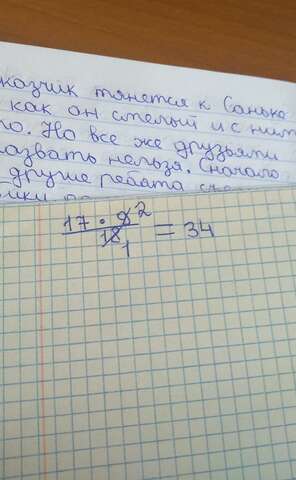 казчик тянется к Санько
как он смелый и с ним
но. Но все же друзьями
назвать нельзя. Сначало
другие ребята
17 · 9 2
18 1
= 34